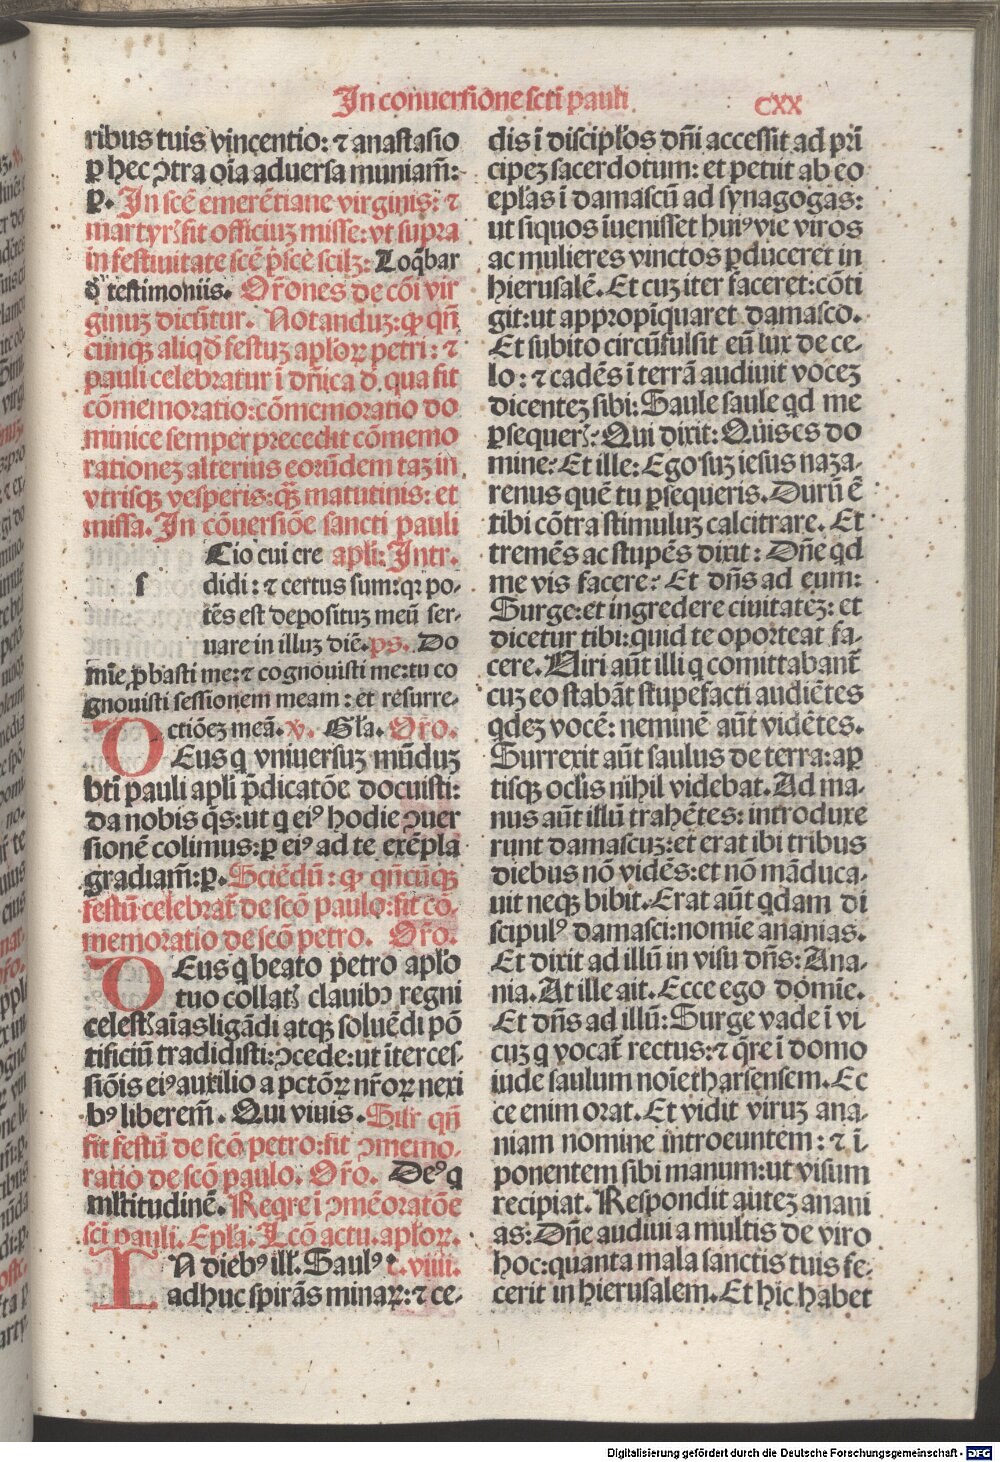 In conuersione scti pauli
CXX
ribus tuis vincentio: ⁊ anastasio
ꝑ hec ↄtra oīa aduersa muniam̄:
ꝑ. In scē emerētiane virginis: ⁊
martyrꝭ fit officiuꝫ misse: vt supra
in festiuitate scē pscē scilꝫ: Loq̄bar
ď testimoniis. Or̄ones de cōi vir
ginuꝫ dicūtur. Notanduꝫ: ꝙ qn̄
cunqꝫ aliqď festuꝫ apl̄oꝝ petri: ⁊
pauli celebratur ī dn̄ica ď qua fit
cōmemoratio: cōmemoratio do
minice semper precedit cōmemo
rationeꝫ alterius eorūdem taꝫ in
vtrisqꝫ vesperis: qꝫ̄ matutinis: et
missa. In cōuersiōe sancti pauli
Cio cui cre apli: Intr.
s didi: ⁊ certus sum: qꝛ po-
tēs est deposituꝫ meū ser-
uare in illuꝫ diē. ps. Do
mīe ꝓbasti me: ⁊ cognouisti me: tu co
gnouisti sessionem meam: et resurre-
ctiōeꝫ meā. v. Gl̄a. Or̄o.
DEus q vniuersuꝫ mūduꝫ
bt̄i pauli apl̄i p̄dicatōe docuisti:
da nobis q̄s: ut q eiꝰ hodie ↄuer
sionē colimus: ꝑ eiꝰ ad te exēpla
gradiam̄: ꝑ. Sciēdū: ꝙ qn̄cūqꝫ
festū celebrat̄ de scō paulo: fit cō-
memoratio de scō petro. Or̄o.
DEus q beato petro apl̄o
tuo collatꝭ clauibꝰ regni
celestꝭ aīas ligādi atqꝫ soluēdi pō
tificiū tradidisti: ↄcede: ut īterces-
siōis eiꝰ auxilio a pctōꝝ nr̄oꝝ nexi
bꝰ liberem̄. Qui viuis. Silr qn̄
fit festū de scō petro: fit ↄmemo-
ratio de scō paulo. Or̄o. Deꝰ q
ml̄titudinē. Reqre ī ↄmēoratōe
sci pauli. Epl̄a. Lcō actu. apl̄oꝝ.
IN diebꝰ ill̄. Saulꝰ c. viiii.
adhuc spirās minaꝝ: ⁊ ce-
dis ī discipl̄os dn̄i accessit ad pri
cipeꝫ sacerdotum: et petiit ab eo
epl̄as ī damascū ad synagogas:
ut si quos īuenisset huiꝰ vie viros
ac mulieres vinctos ꝑduceret in
hierusalē. Et cuꝫ iter faceret: cōti
git: ut appropīquaret damasco.
Et subito circūfulsit eū lux de ce-
lo: ⁊ cadēs ī terrā audiuit voceꝫ
dicenteꝫ sibi: Saule saule qd me
ꝑsequerꝭ? Qui dixit: Quis es do
mine? Et ille: Ego suꝫ iesus naza-
renus quē tu ꝑsequeris. Durū ē
tibi cōtra stimuluꝫ calcitrare. Et
tremēs ac stupēs dixit: Dn̄e qd
me vis facere? Et dn̄s ad eum:
Surge: et ingredere ciuitateꝫ: et
dicetur tibi: quid te oporteat fa-
cere. Viri aūt illi q comittabant̄
cuꝫ eo stabāt stupefacti audiētes
qdeꝫ vocē: neminē aūt vidētes.
Surrexit aūt saulus de terra: aꝑ
tisqꝫ oclis nihil videbat. Ad ma-
nus aūt illū trahētes: introduxe
runt damascuꝫ: et erat ibi tribus
diebus nō vidēs: et nō māduca-
uit neqꝫ bibit. Erat aūt qdam di
scipulꝰ damasci: nomie ananias.
Et dixit ad illū in visu dn̄s: Ana-
nia. At ille ait. Ecce ego domie.
Et dn̄s ad illū: Surge vade ī vi
cuꝫ q vocat̄ rectus: ⁊ q̄re ī domo
iude saulum noīe tharsensem. Ec
ce enim orat. Et vidit viruꝫ ana-
niam nomine introeuntem: ⁊ ī-
ponentem sibi manum: ut visum
recipiat. Respondit auteꝫ anani
as: Dn̄e audiui a multis de viro
hoc: quanta mala sanctis tuis fe-
cerit in hierusalem. Et hic habet
Digitalisierung gefördert durch die Deutsche Forschungsgemeinschaft - DFG